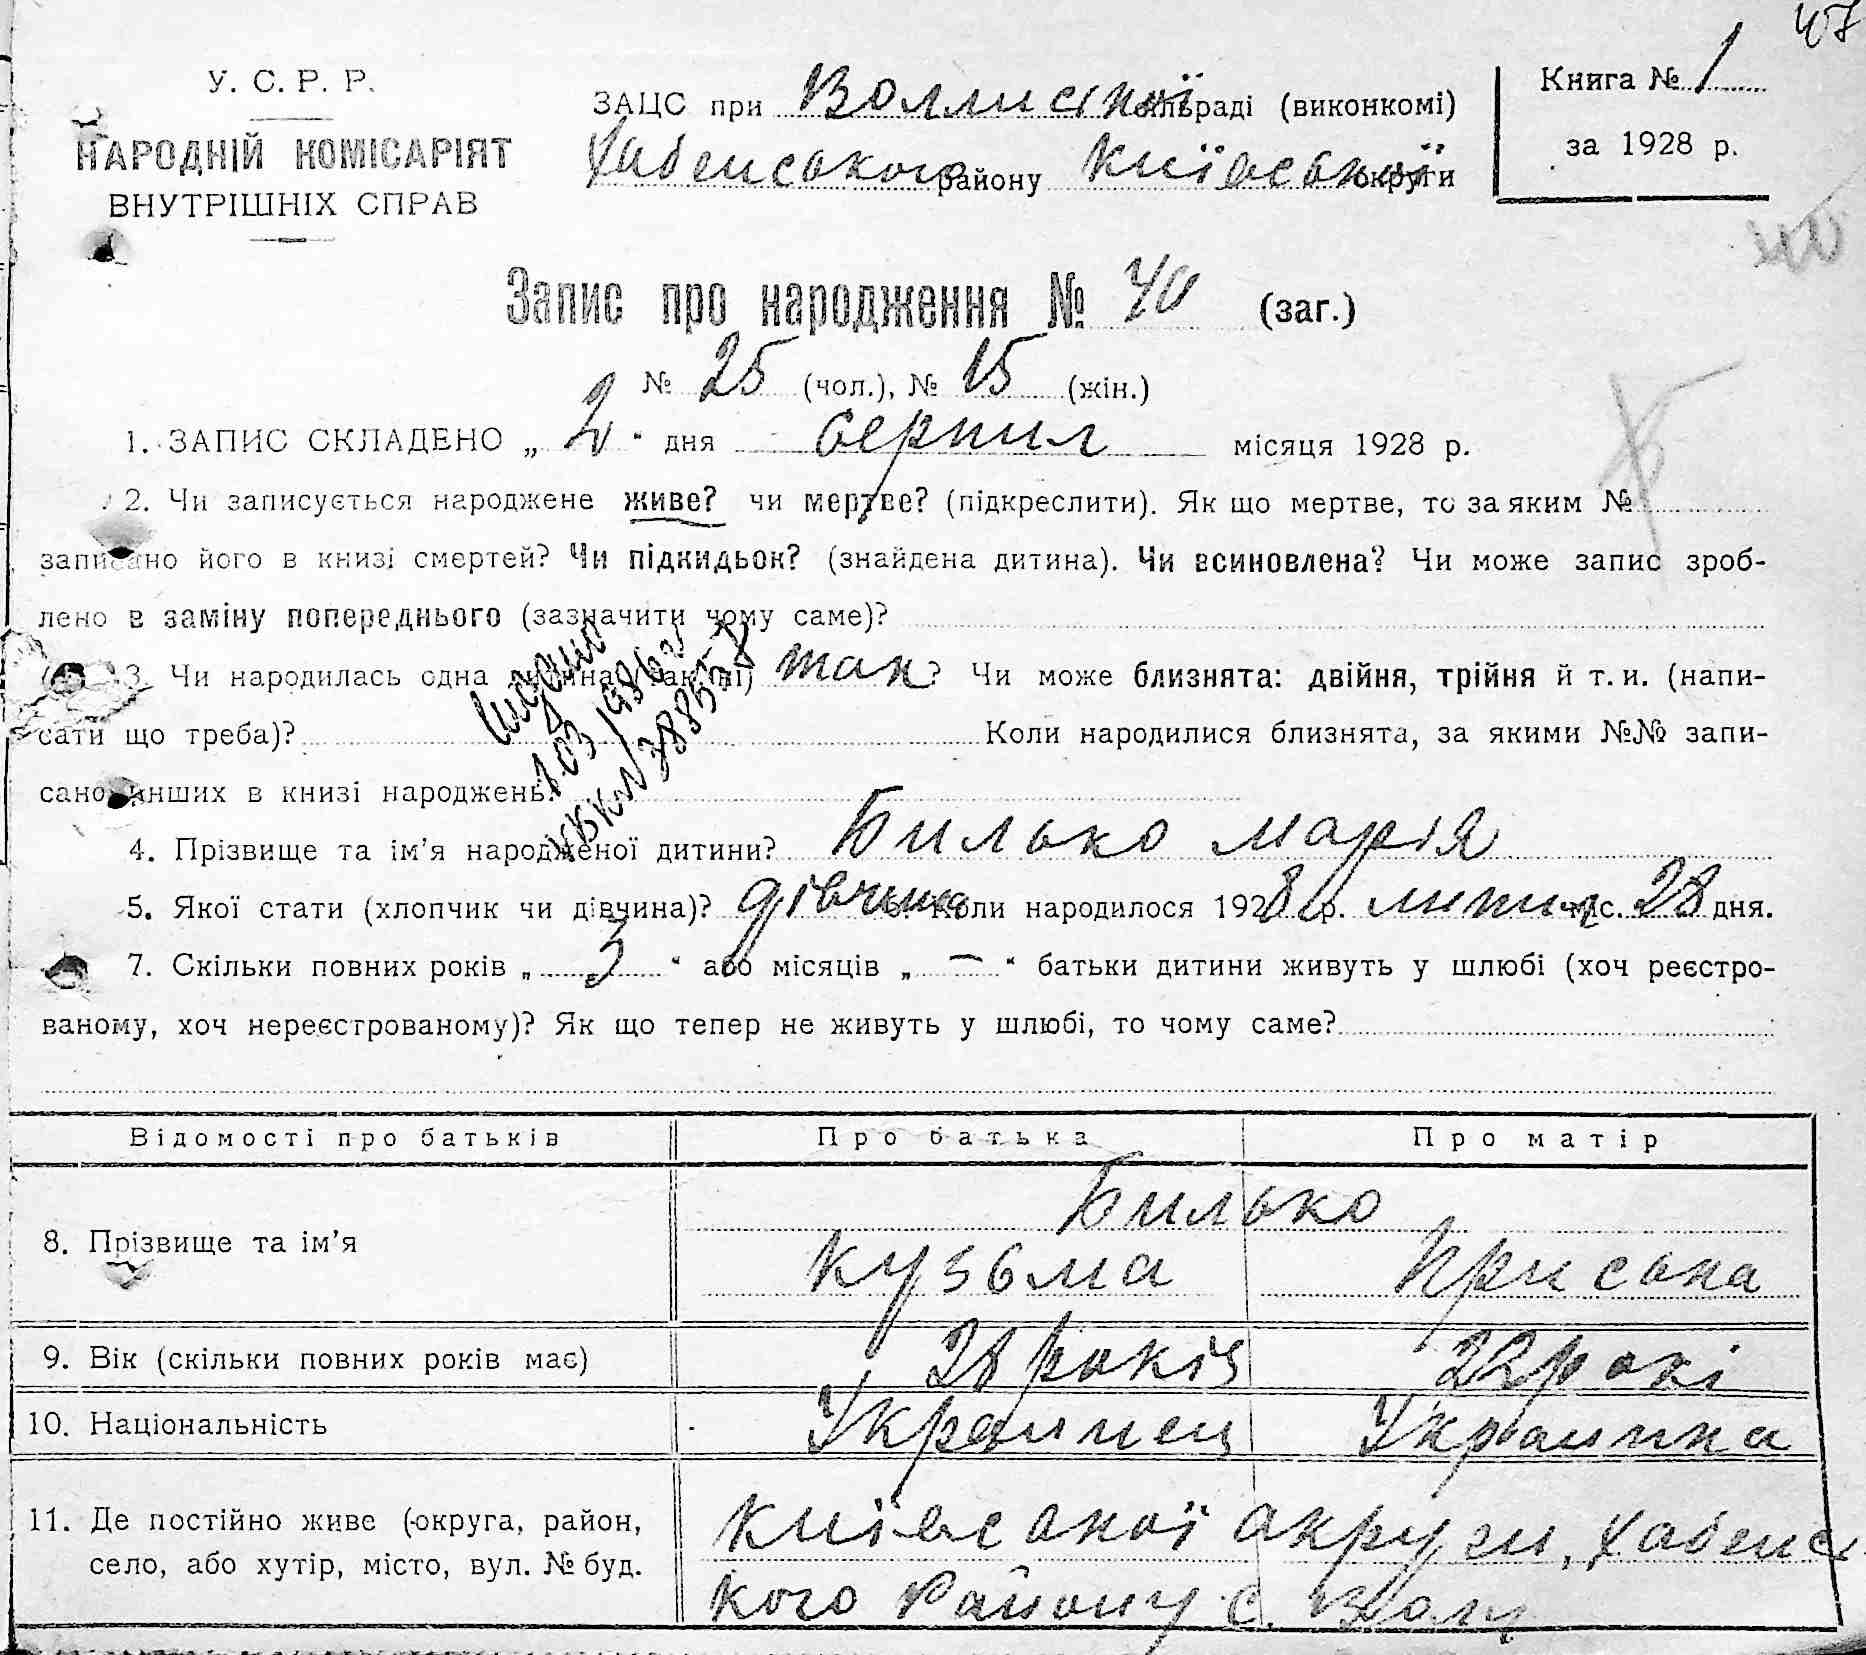 47
У. С. Р. Р.
НАРОДНІЙ КОМІСАРІЯТ
ВНУТРІШНІХ СПРАВ
ЗАЦС при сільраді (виконкомі)
Хабенського району Київської округи
Книга № 1
за 1928 р.
Запис про народження № 40 (заг.)
№ 25 (чол.), № 15 (жін.)
1. ЗАПИС СКЛАДЕНО „ 2 " дня серпня місяця 1928 р.
2. Чи записується народжене живе? чи мертве? (підкреслити). Як що мертве, то за яким №
записано його в книзі смертей? Чи підкидьок? (знайдена дитина). Чи всиновлена? Чи може запис зроб-
лено в заміну попереднього (зазначити чому саме)?
3. Чи народилась одна дитина (так, ні) так? Чи може близнята: двійня, трійня й т. и. (напи-
сати що треба)? Коли народилися близнята, за якими №№ запи-
сано инших в книзі народжень.
4. Прізвище та ім'я народженої дитини? Билько Марія
5. Якої стати (хлопчик чи дівчина)? дівчина Коли народилося 1928 р. липня міс. 28 дня.
7. Скільки повних років „ 3 " або місяців „ — " батьки дитини живуть у шлюбі (хоч реєстро-
ваному, хоч нереєстрованому)? Як що тепер не живуть у шлюбі, то чому саме?
Відомості про батьків Про батька Про матір
8. Прізвище та ім'я Билько
Кузьма Приська
9. Вік (скільки повних років має) 28 років 22 рокі
10. Національність Украинец Украинка
11. Де постійно живе (округа, район,
село, або хутір, місто, вул. № буд.
Київської округи, Хабенсь
кого Району с.